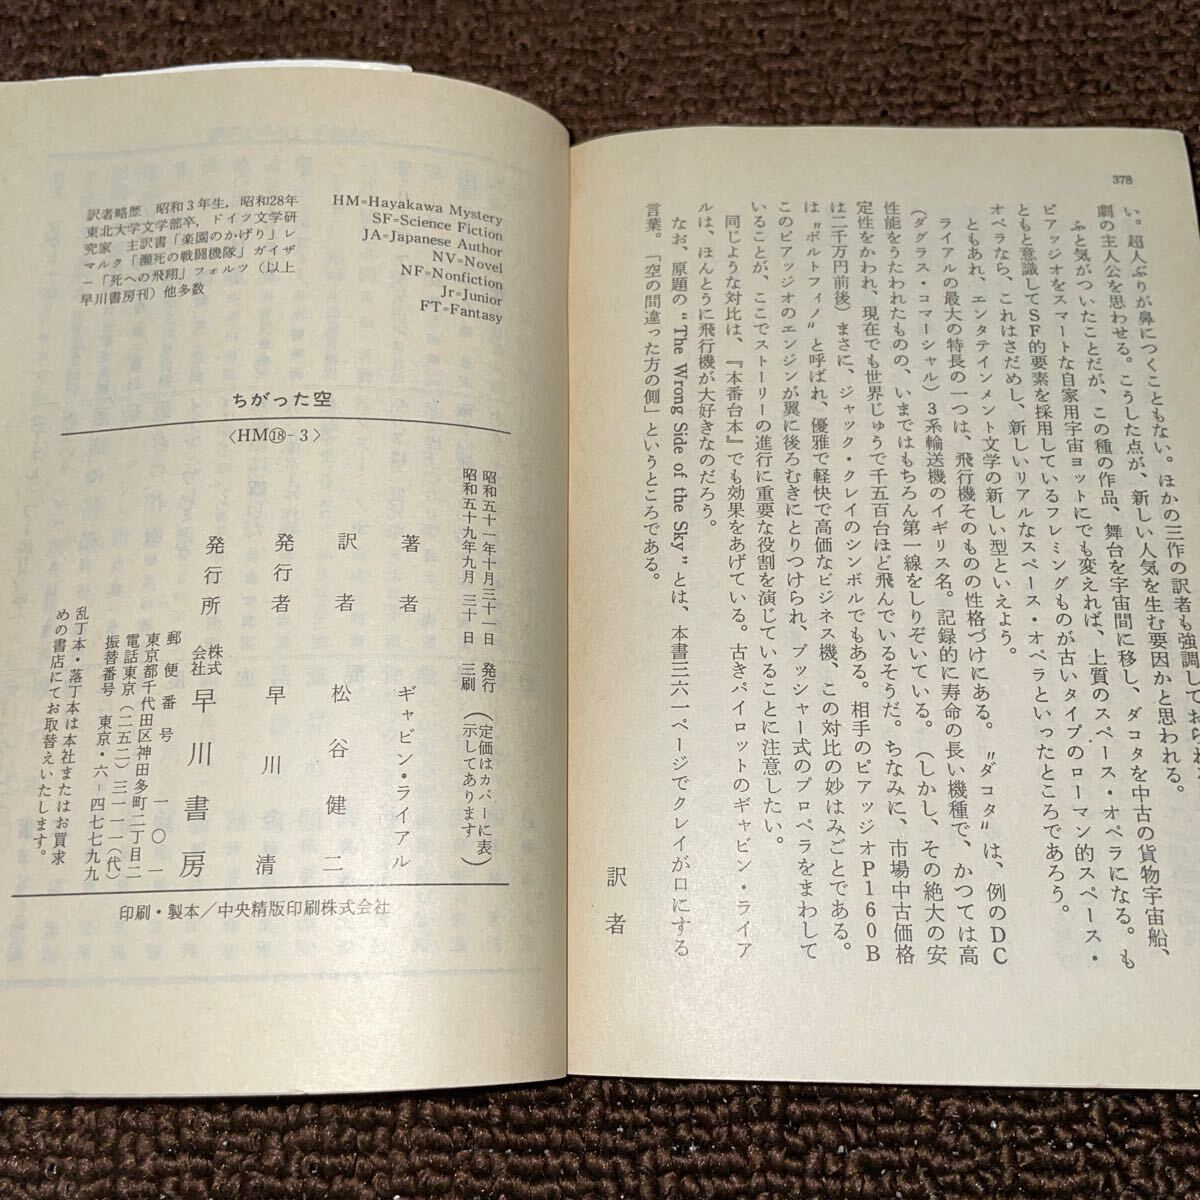 378
い。超人ぶりが鼻につくこともない。ほかの三作の訳者も強調しておられ
劇の主人公を思わせる。こうした点が、新しい人気を生む要因かと思われる。
ふと気がついたことだが、この種の作品、舞台を宇宙間に移し、ダコタを中古の貨物宇宙船、
ピアッジオをスマートな自家用宇宙ヨットにでも変えれば、上質のスペース・オペラになる。も
ともと意識してSF的要素を採用しているフレミングものが古いタイプのローマン的スペース・
オペラなら、これはさだめし、新しいリアルなスペース・オペラといったところであろう。
ともあれ、エンタテインメント文学の新しい型といえよう。
ライアルの最大の特長の一つは、飛行機そのものの性格づけにある。〝ダコタ〟は、例のDC
(ダグラス・コマーシャル)3系輸送機のイギリス名。記録的に寿命の長い機種で、かつては高
性能をうたわれたものの、いまではもちろん第一線をしりぞいている。(しかし、その絶大の安
定性をかわれ、現在でも世界じゅうで千五百台ほど飛んでいるそうだ。ちなみに、市場中古価格
は二千万円前後)まさに、ジャック・クレイのシンボルでもある。相手のピアッジオP160B
は〝ポルトフィノ〟と呼ばれ、優雅で軽快で高価なビジネス機、この対比の妙はみごとである。
このピアッジオのエンジンが翼に後ろむきにとりつけられ、プッシャー式のプロペラをまわして
いることが、ここでストーリーの進行に重要な役割を演じていることに注意したい。
同じような対比は、『本番台本』でも効果をあげている。古きパイロットのギャビン・ライア
ルは、ほんとうに飛行機が大好きなのだろう。
なお、原題の〝The Wrong Side of the Sky〟とは、本書三六一ページでクレイが口にする
言葉。「空の間違った方の側」というところである。
訳者
HM=Hayakawa Mystery
SF=Science Fiction
JA=Japanese Author
NV=Novel
NF=Nonfiction
Jr=Junior
FT=Fantasy
訳者略歴 昭和3年生,昭和28年
東北大学文学部卒,ドイツ文学研
究家 主訳書「楽園のかげり」レ
マルク「瀕死の戦闘機隊」ガイザ
ー「死への飛翔」フォルツ(以上
早川書房刊)他多数
ちがった空
〈HM⑱-3〉
昭和五十一年十月三十一日 発行
昭和五十九年九月三十日 三刷
(定価はカバーに表示してあります)
著者 ギャビン・ライアル
訳者 松谷健二
発行者 早川清
発行所 株式会社 早川書房
郵便番号 一〇一
東京都千代田区神田多町二丁目二
電話東京(二五二)三一一一(代)
振替番号 東京・六-四七七九九
乱丁本・落丁本は本社またはお買求
めの書店にてお取替えいたします。
印刷・製本/中央精版印刷株式会社